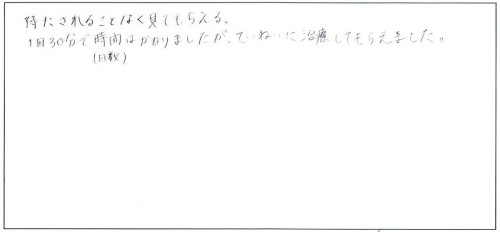 待たされることなく見てもらえる。
1回30分で時間はかかりましたが、ていねいに治療してもらえました。
(日数)